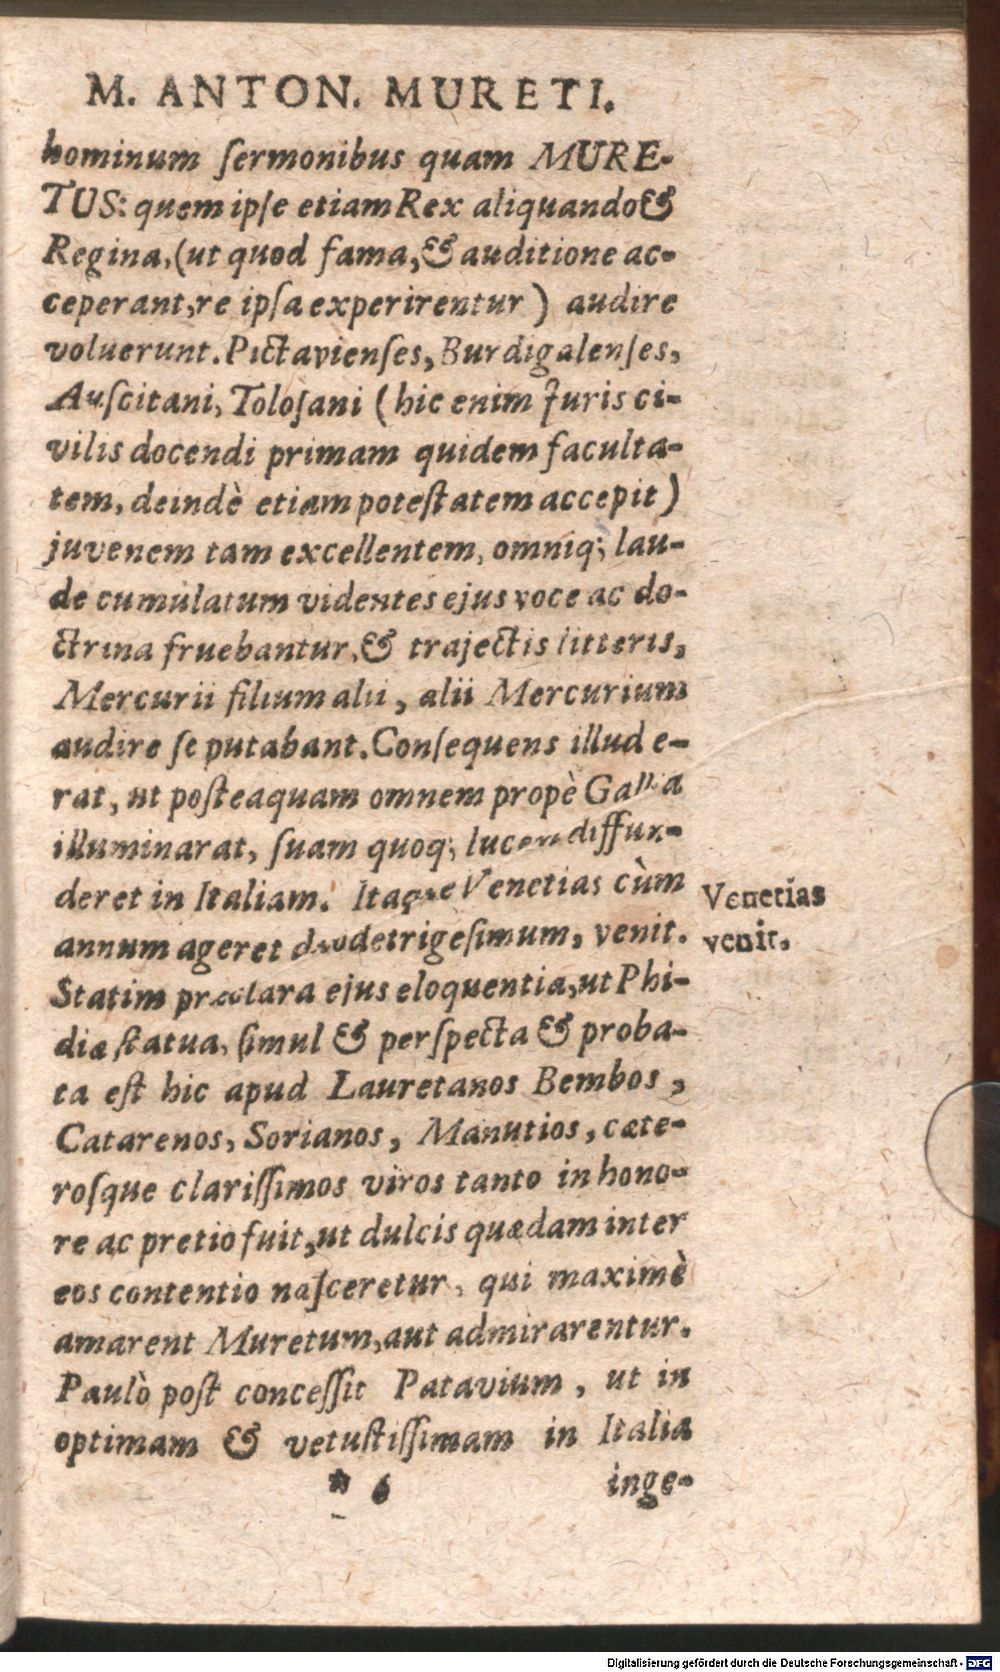 M. ANTON. MURETI.
hominum ſermonibus quam MURE-
TUS: quem ipſe etiam Rex aliquando &
Regina, (ut quod fama, & auditione ac-
ceperant, re ipſa experirentur) audire
voluerunt. Pictavienſes, Burdigalenſes,
Auſcitani, Toloſani (hic enim Juris ci-
vilis docendi primam quidem faculta-
tem, deindè etiam poteſtatem accepit)
juvenem tam excellentem, omniq; lau-
de cumulatum videntes ejus voce ac do-
ctrina fruebantur, & trajectis litteris,
Mercurii filium alii, alii Mercurium
audire ſe putabant. Conſequens illud e-
rat, ut poſteaquam omnem propè Gallia
illuminarat, ſuam quoq; lucem diffun-
deret in Italiam. Itaque Venetias cùm
annum ageret duodetrigeſimum, venit.
Statim præclara ejus eloquentia, ut Phi-
diæ ſtatua, ſimul & perſpecta & proba-
ta eſt hic apud Lauretanos Bembos,
Catarenos, Sorianos, Manutios, cæte-
roſque clariſſimos viros tanto in hono-
re ac pretio fuit, ut dulcis quædam inter
eos contentio naſceretur, qui maximè
amarent Muretum, aut admirarentur.
Paulò poſt conceſſit Patavium, ut in
optimam & vetuſtiſſimam in Italia
* 6 inge-
Venetias
venit.
Digitalisierung gefördert durch die Deutsche Forschungsgemeinschaft - DFG